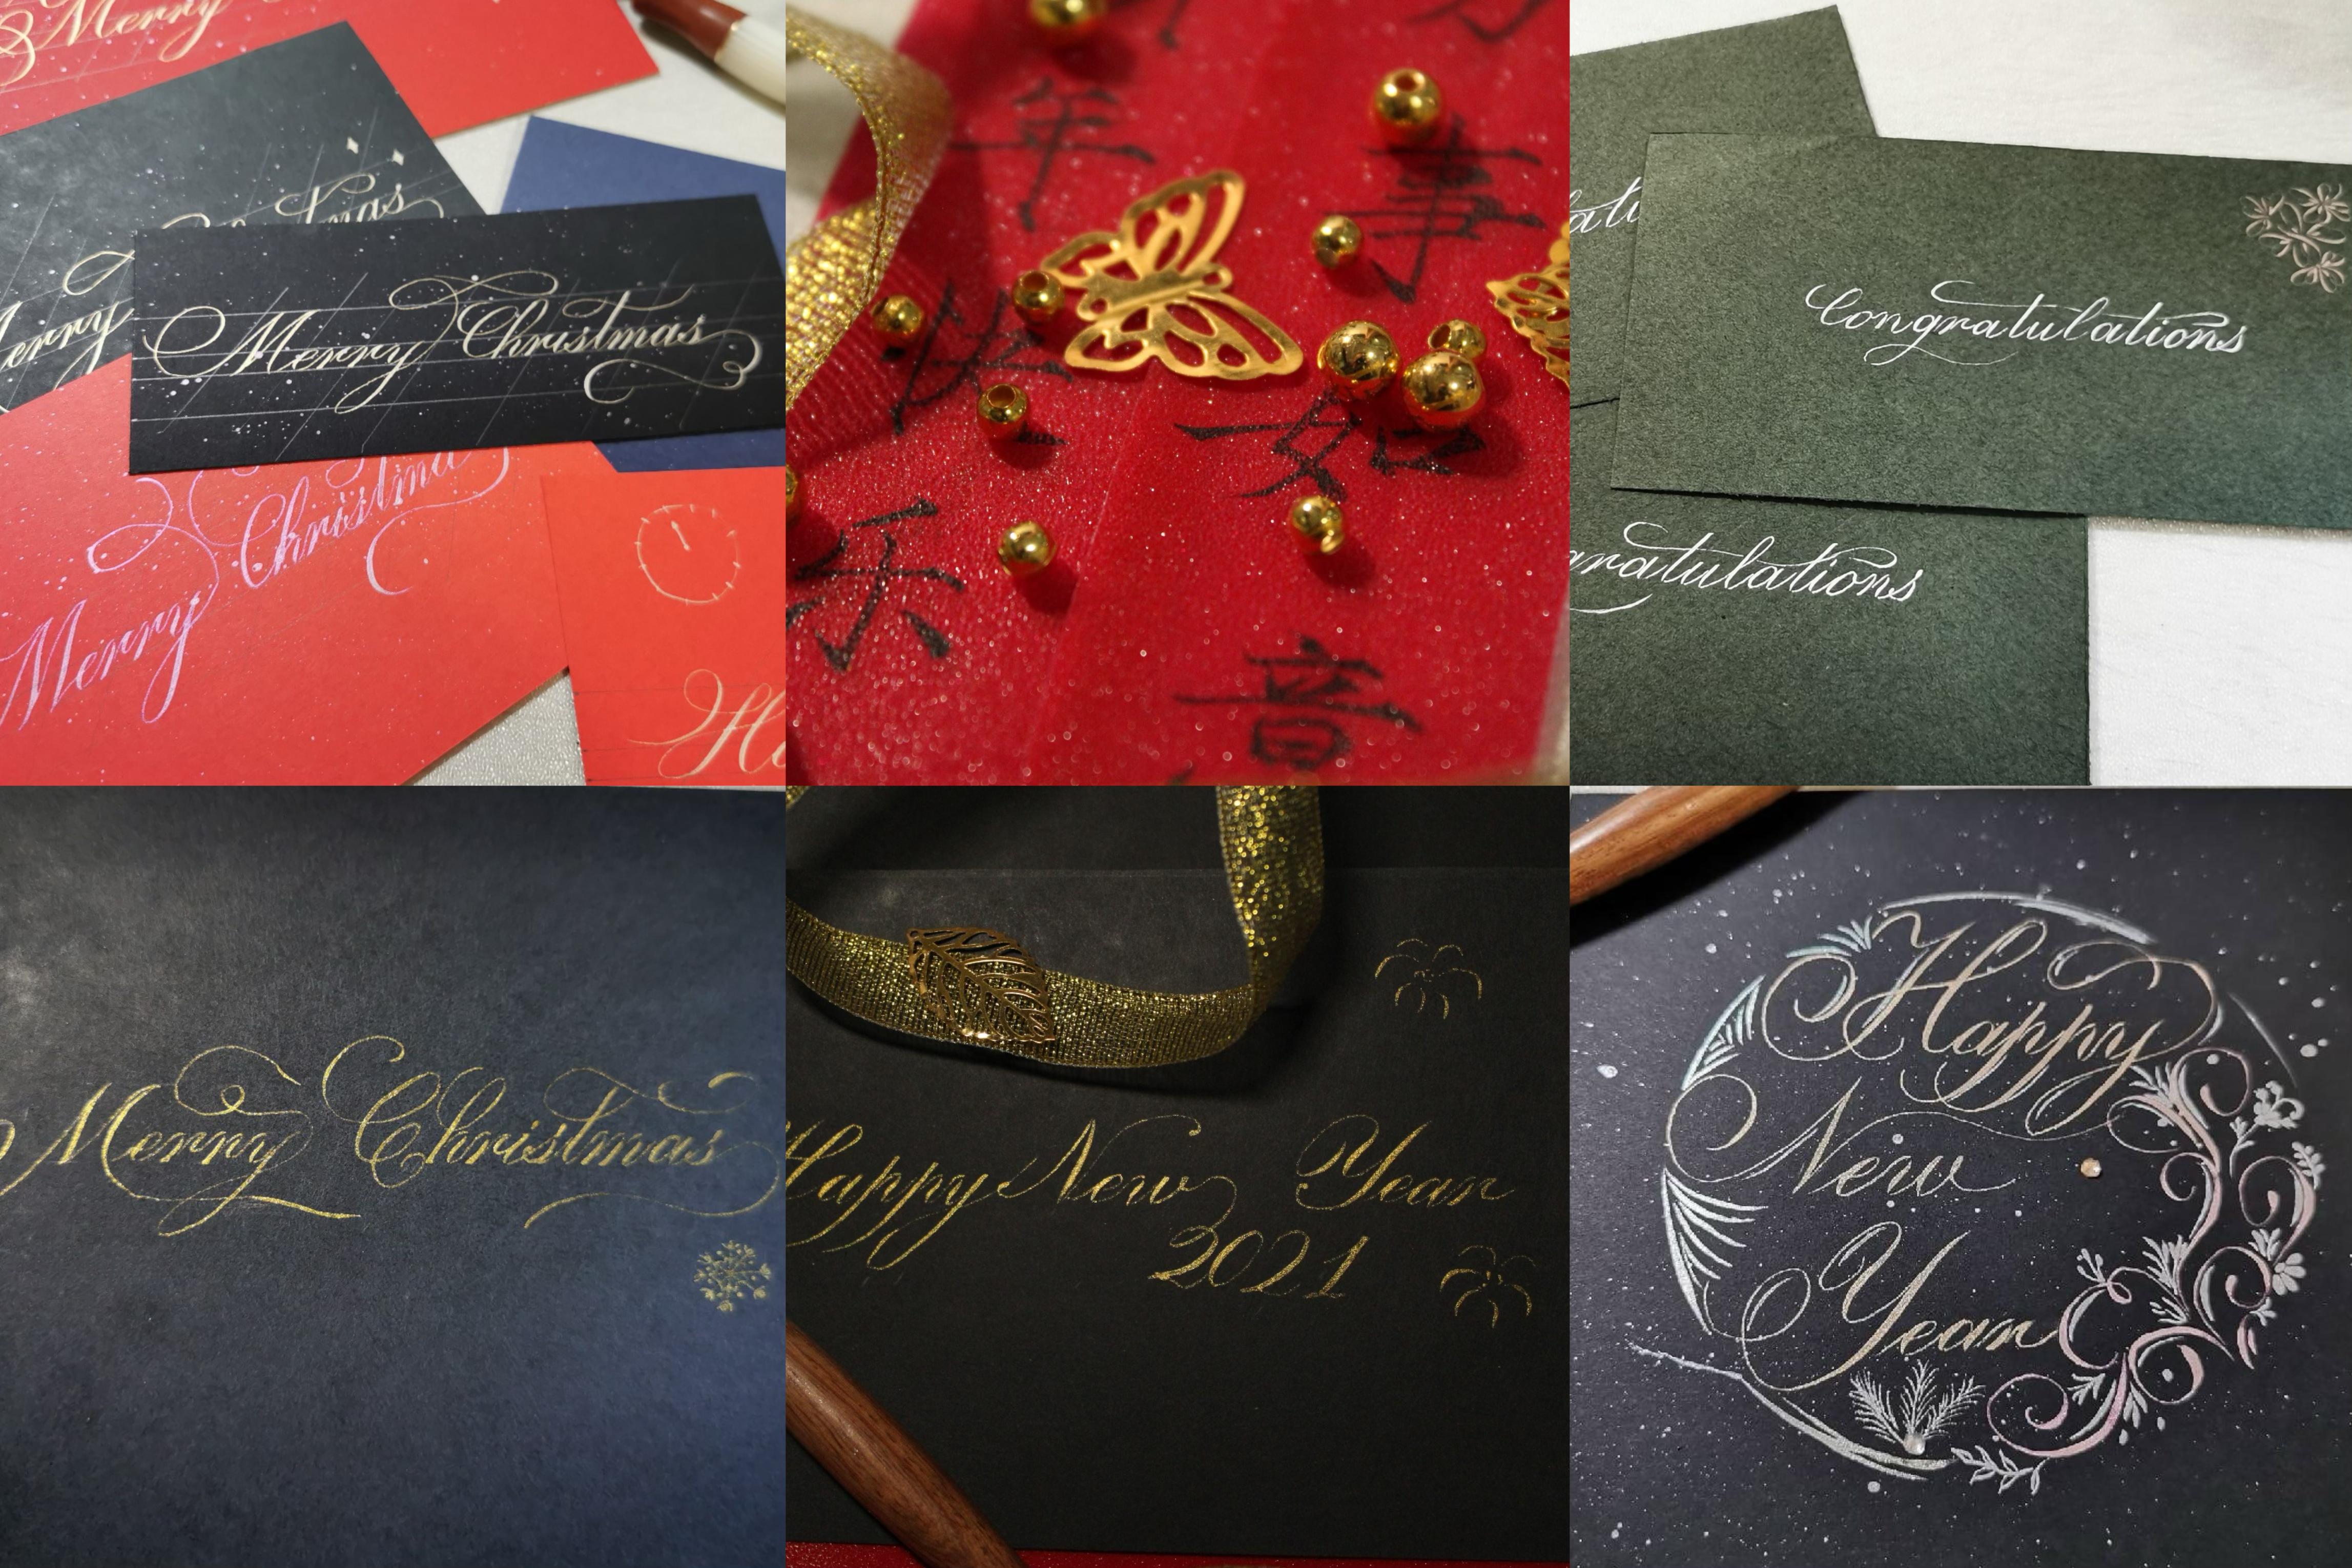 Merry
Merry
Merry Christmas
Merry
Christma
年快乐
事如意
Congratulations
gratulations
Merry Christmas
Happy New Year
2021
Happy
New
Year